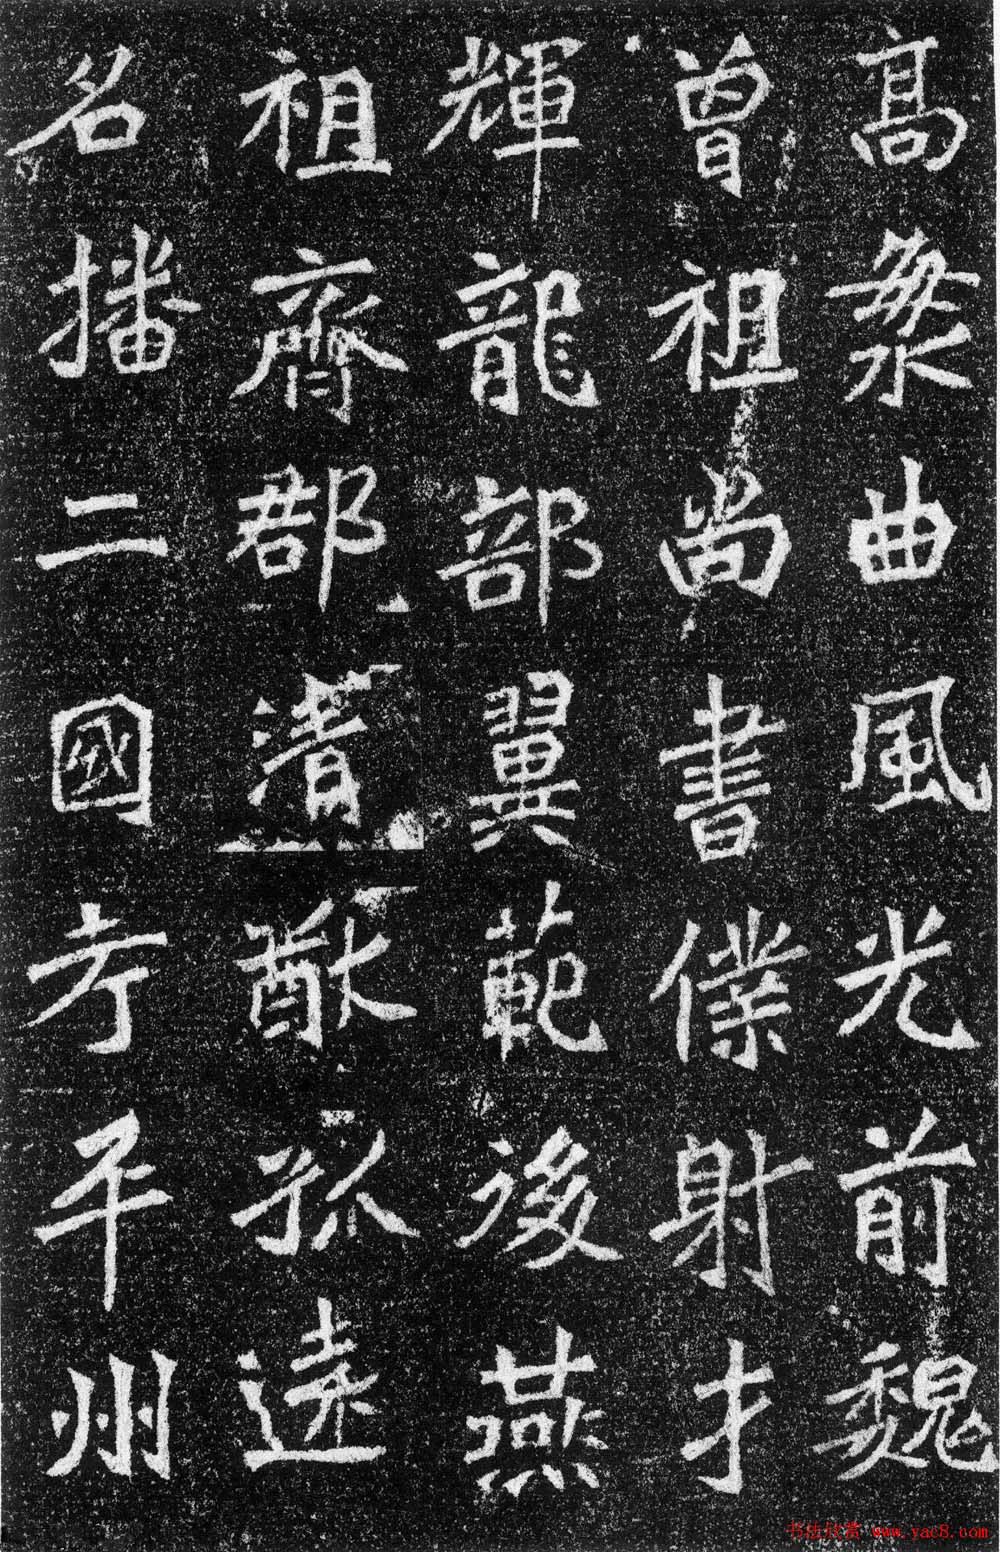 高粲曲風光前魏
曾祖尚書僕射才
輝龍部翼範後燕
祖齊郡清猷孤遠
名播二國考平州
书法欣赏 www.yac8.com